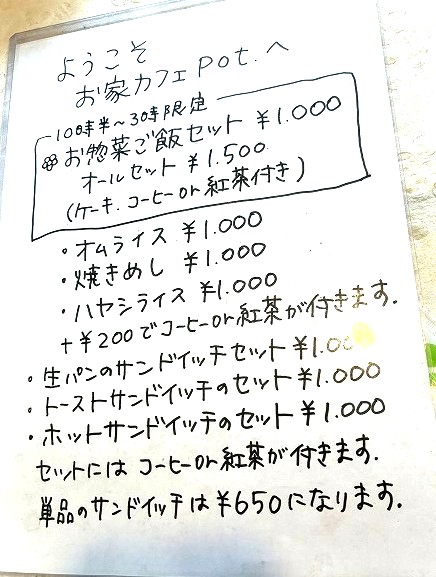 ようこそ
お家カフェpot.へ
10時半〜3時限定
お惣菜ご飯セット ¥1.000
オールセット ¥1.500
(ケーキ.コーヒーor紅茶付き)
・オムライス ¥1.000
・焼きめし ¥1.000
・ハヤシライス ¥1.000
+¥200でコーヒーor紅茶が付きます.
・生パンのサンドイッチセット¥1.000
・トーストサンドイッチのセット¥1.000
・ホットサンドイッチのセット¥1.000
セットにはコーヒーor紅茶が付きます.
単品のサンドイッチは¥650になります.